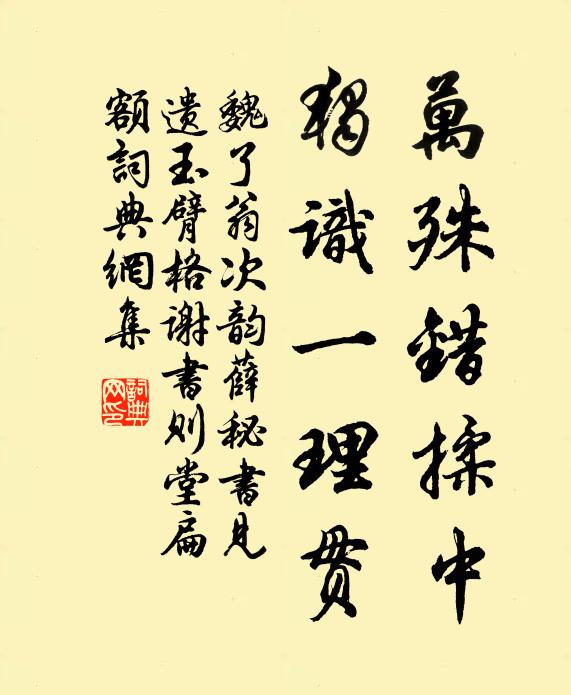 萬殊錯揉中
獨識一理貫
魏了翁次韵薛秘書見
遺玉臂格謝書則堂扁
額詞典網集
詞典
网印